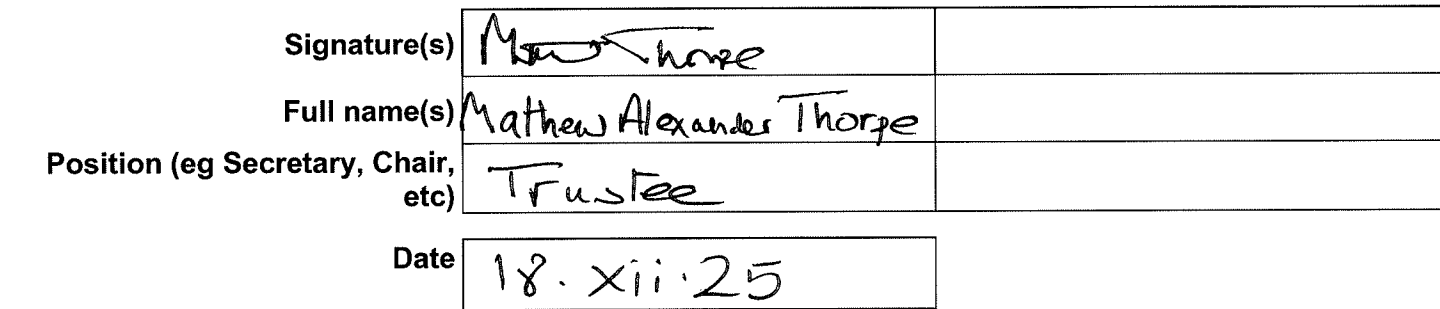 Signature(s) M Thorpe
Full name(s) Mathew Alexander Thorpe
Position (eg Secretary, Chair,
etc) Trustee
Date 18.xii.25